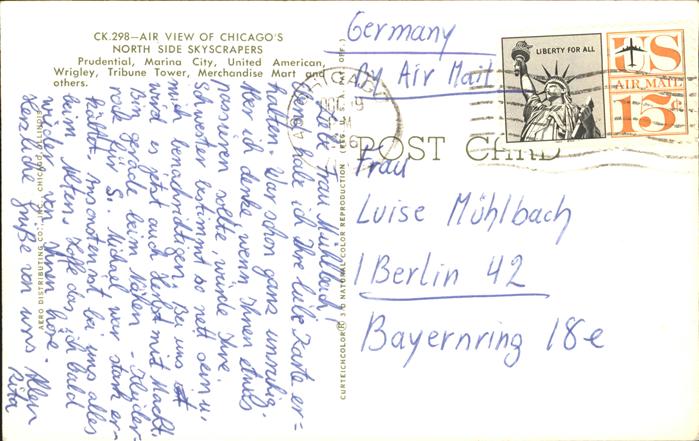 CK.298—AIR VIEW OF CHICAGO'S
NORTH SIDE SKYSCRAPERS
Prudential, Marina City, United American,
Wrigley, Tribune Tower, Merchandise Mart and
others.
Liebe Frau Mühlbach!
habe ich Ihre liebe Karte er-
halten. War schon ganz unruhig.
Aber ich denke, wenn Ihnen etwas
passieren sollte, würde Ihre
Schwester bestimmt so nett sein u.
mich benachrichtigen. Bei uns
wird es jetzt auch Herbst mit Macht.
Bin gerade beim Nähen - Kleider-
für S. Michael war stark er-
kältet. Ansonsten ist bei uns alles
beim Alten. Hoffe das ich bald
wieder von Ihnen höre.
Herzliche Grüße von uns Allen
AERO DISTRIBUTING CO., INC., CHICAGO, ILLINOIS
CURTEICHCOLOR® 3-D NATURAL COLOR REPRODUCTION (REG. U.S.A. PAT. OFF.)
Germany
By Air Mail
CHICAGO
LIBERTY FOR ALL
US
AIR MAIL
15¢
POST CARD
Frau
Luise Mühlbach
1 Berlin 42
Bayernring 18e